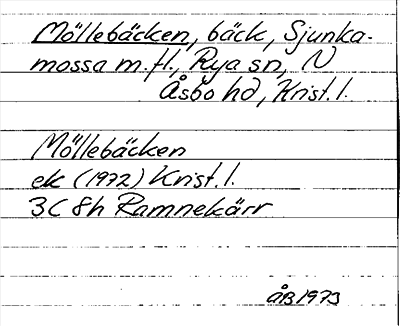 Möllebäcken, bäck, Sjunka-
mossa m.fl., Rya sn, N
Åsbo hd, Krist. l.
Möllebäcken
ek (1972) Krist. l.
3C 8h Ramnekärr
ÅB 1973